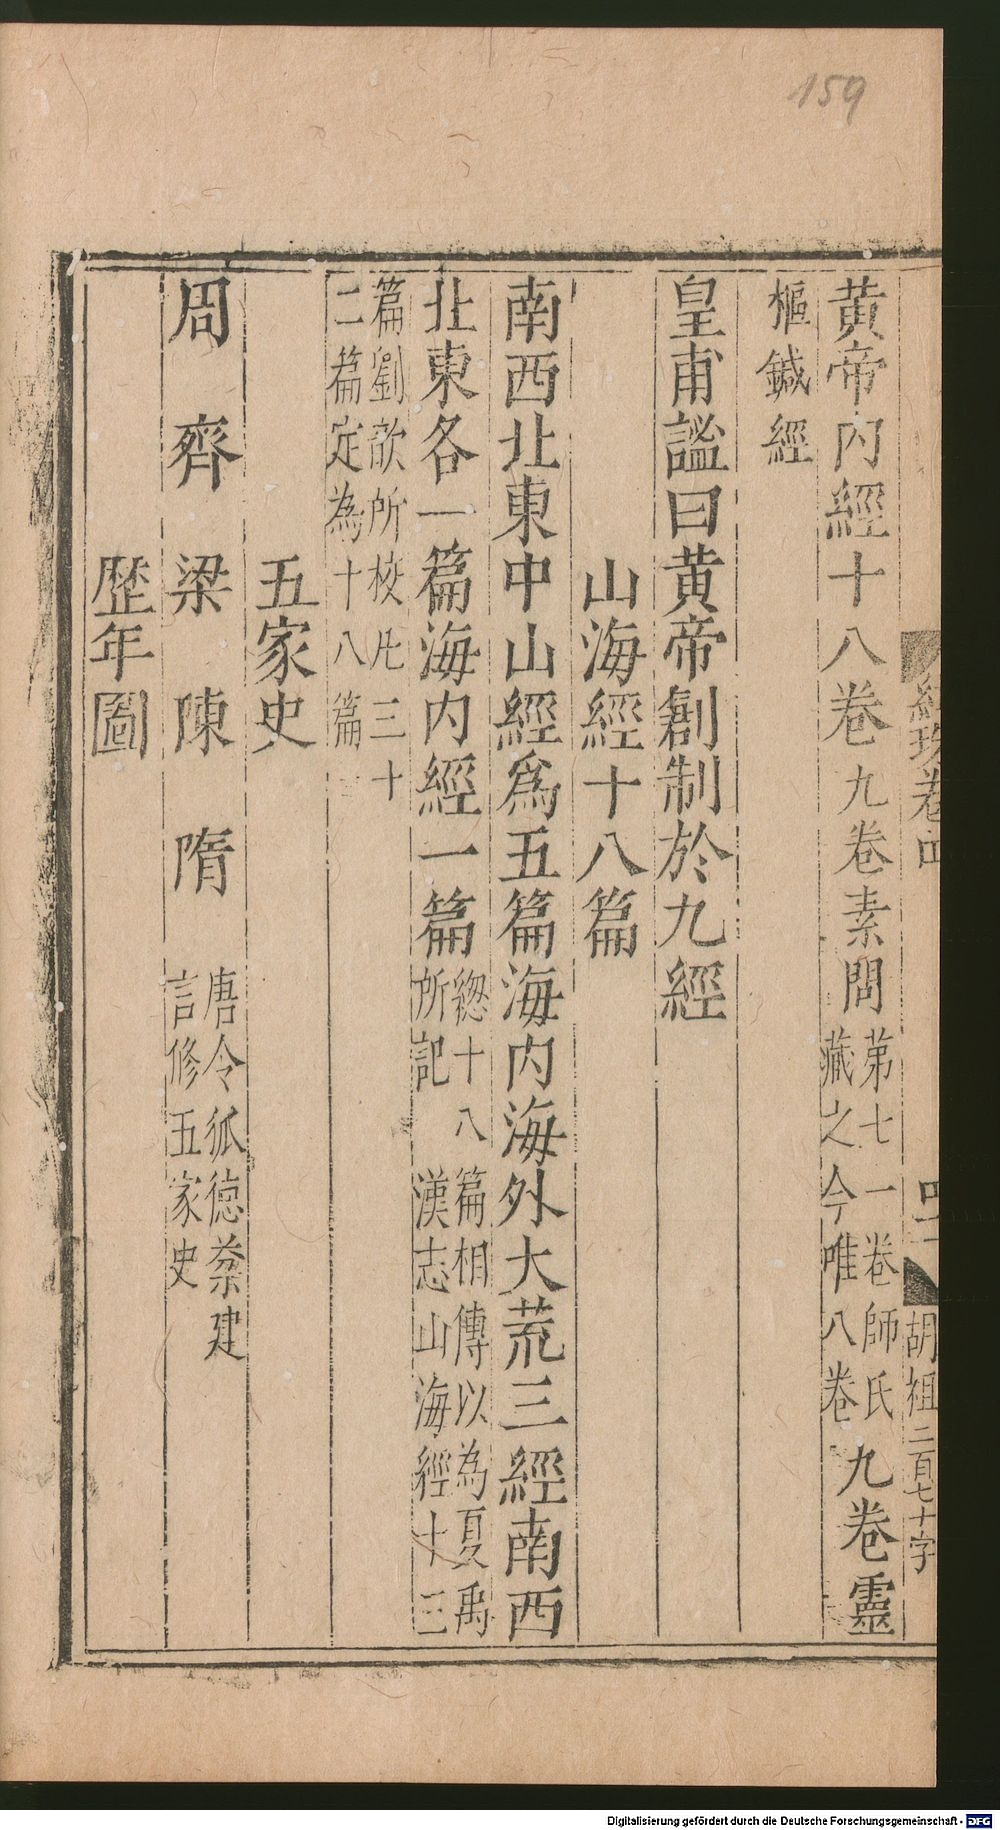 159
黄帝内經十八卷九卷素問第七一卷師氏藏之今唯八卷九卷靈
樞鍼經
皇甫謐曰黄帝創制於九經
山海經十八篇
南西北東中山經爲五篇海内海外大荒三經南西
北東各一篇海内經一篇總十八篇相傳以為夏禹所記 漢志山海經十三
篇劉歆所校凡三十二篇定為十八篇
五家史
周 齊 梁 陳 隋 唐令狐德棻建言修五家史
歷年圖
紺珠卷四
胡祖二百七十字
Digitalisierung gefördert durch die Deutsche Forschungsgemeinschaft - DFG